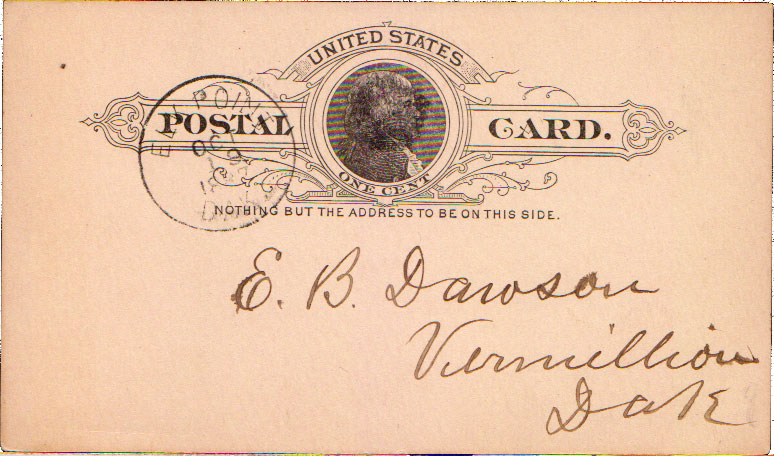 UNITED STATES
POSTAL CARD.
ONE CENT
NOTHING BUT THE ADDRESS TO BE ON THIS SIDE.
POINT
E. B. Dawson
Vermillion
Dak